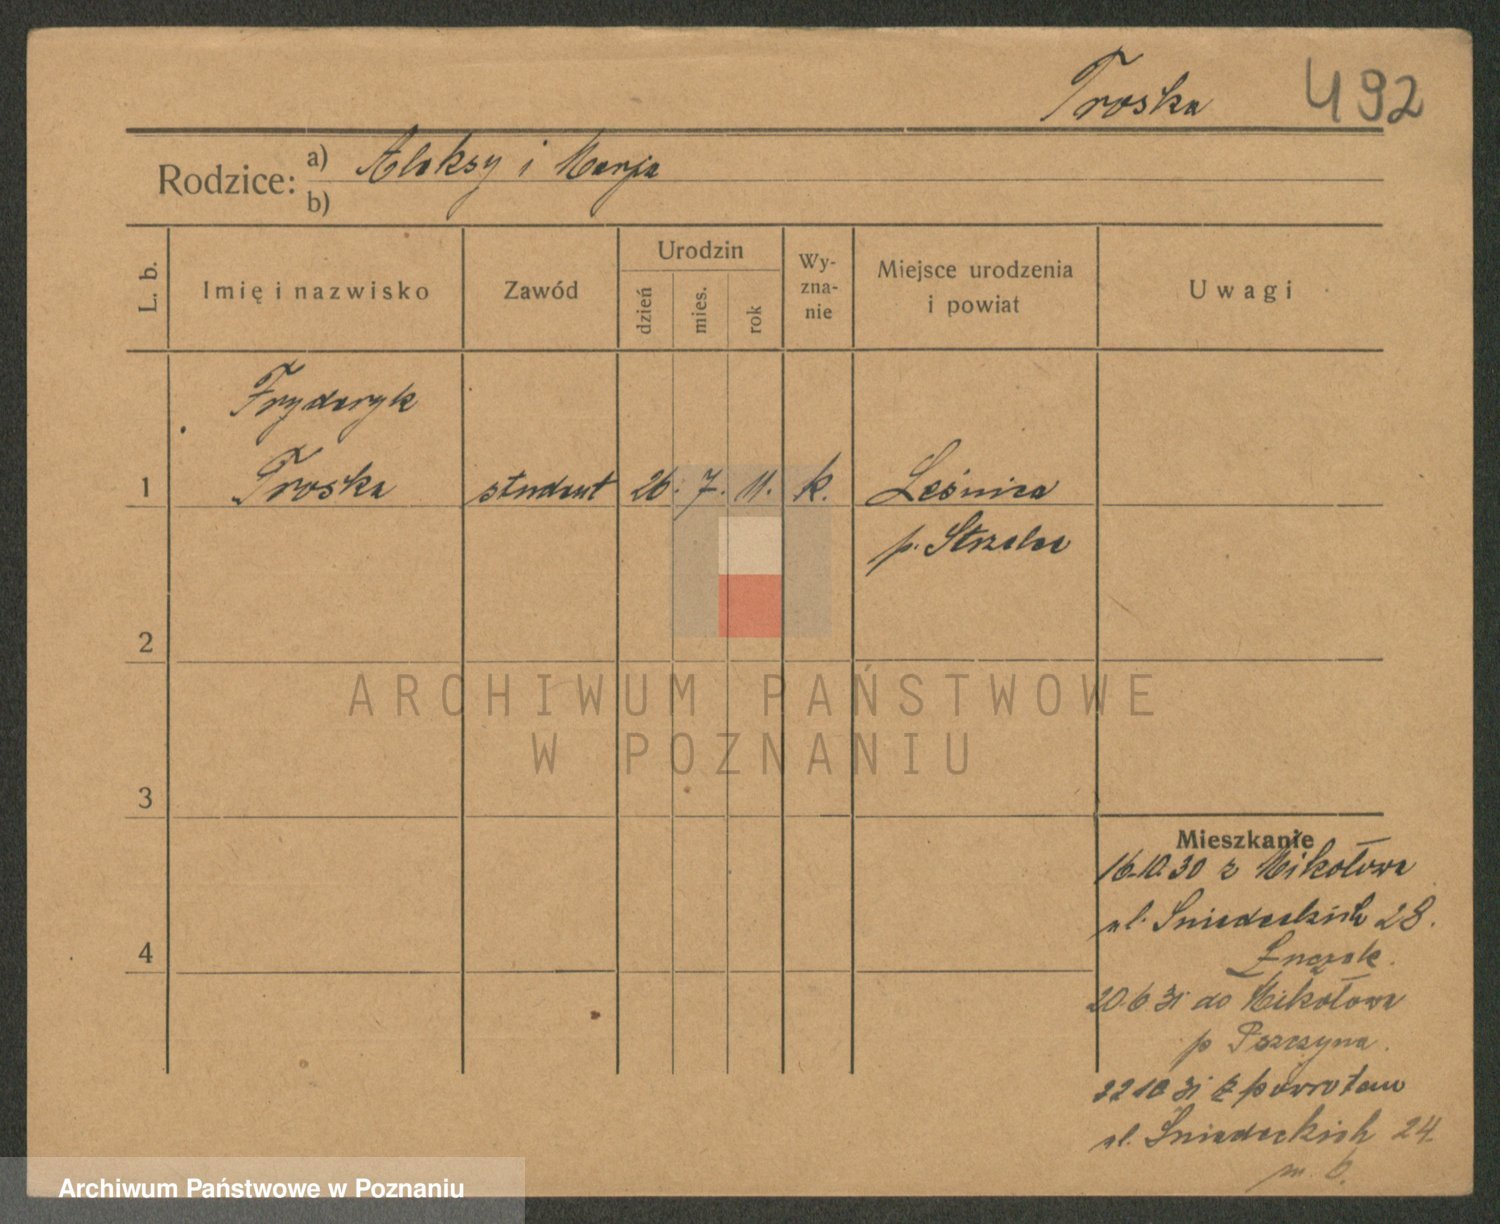 Troska 492
Rodzice: a) Aleksy i Marja
b)
L. b.
Imię i nazwisko
Zawód
Urodzin
dzień
mies.
rok
Wy-
zna-
nie
Miejsce urodzenia
i powiat
Uwagi
Fryderyk
1 Troska student 26. 7. 11. k. Leśnica
p. Strzelce
2
3
4
Mieszkanie
16.10.30 z Mikołowa
ul. Śniadeckich 28.
20.6 31 do Mikołowa
p Pszczyna.
22 10 31 z powrotem
ul. Śniadeckich 24
m. 6.
ARCHIWUM PAŃSTWOWE
W POZNANIU
Archiwum Państwowe w Poznaniu